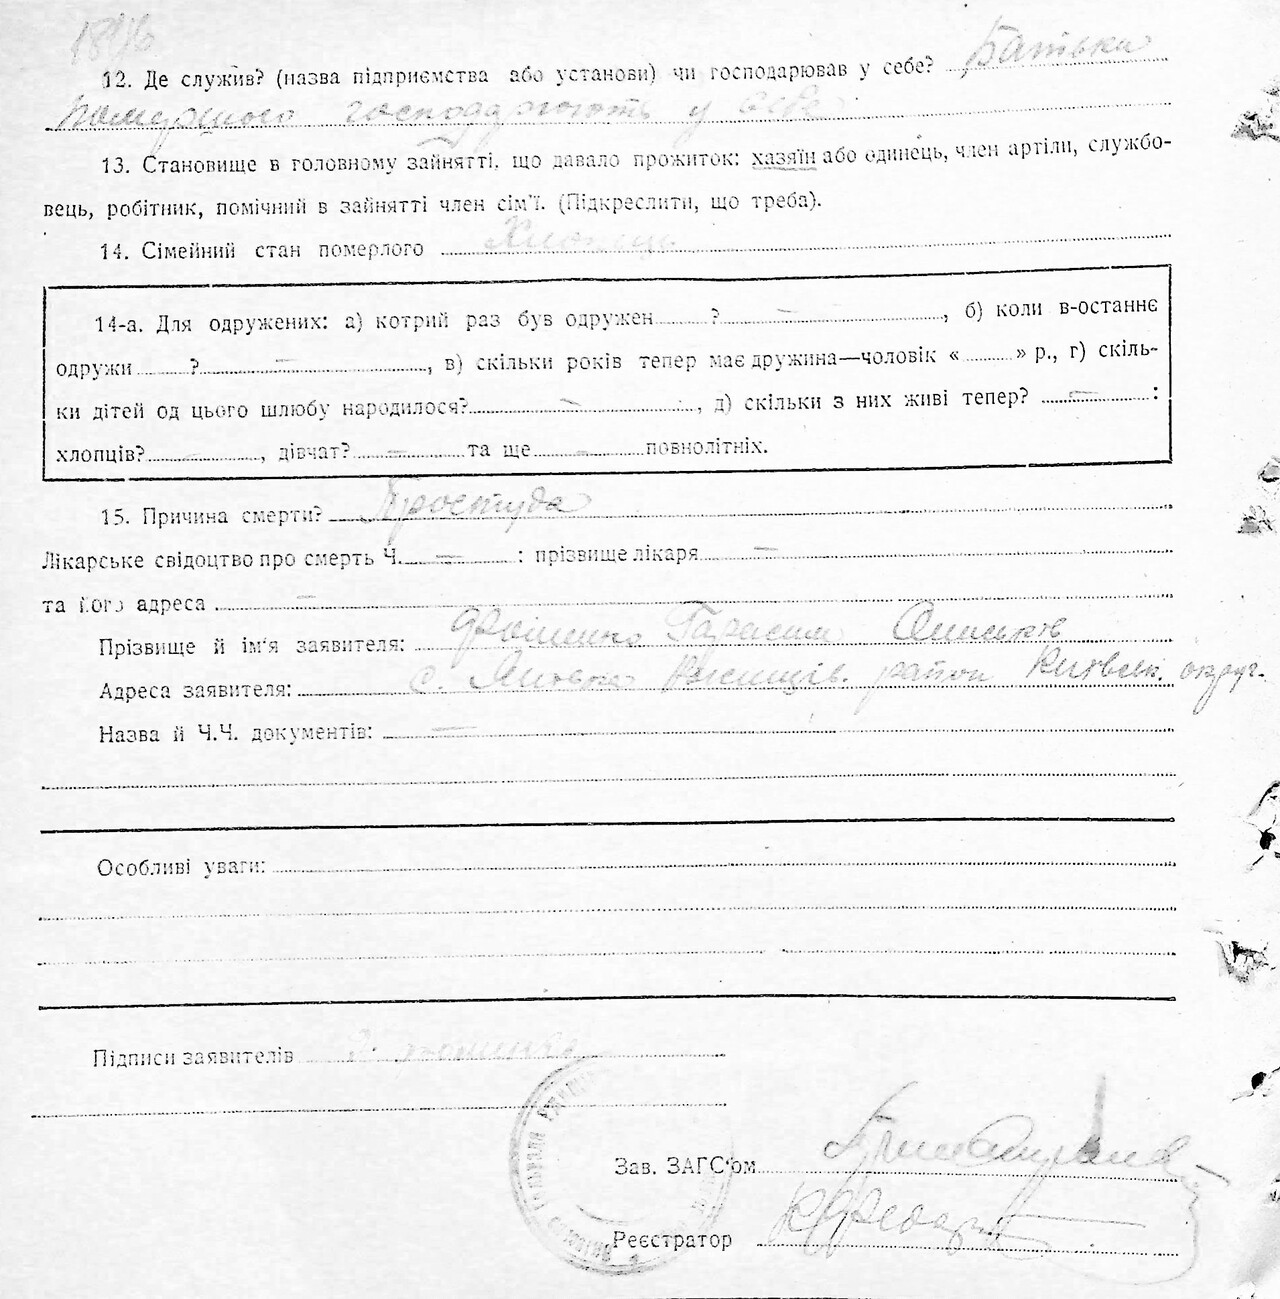 12. Де служив? (назва підприємства або установи) чи господарював у себе? Батьки
помершого господарюють у себе
13. Становище в головному зайнятті, що давало прожиток: хазяїн або одинець, член артіли, службо-
вець, робітник, помічний в зайнятті член сім'ї. (Підкреслити, що треба).
14. Сімейний стан померлого Хлопець
14-а. Для одружених: а) котрий раз був одружен ? —, б) коли в-останнє
одружи ? —, в) скільки років тепер має дружина—чоловік « » р., г) скіль-
ки дітей од цього шлюбу народилося? —, д) скільки з них живі тепер? — :
хлопців? —, дівчат? — та ще — повнолітніх.
15. Причина смерти? Простуда
Лікарське свідоцтво про смерть Ч. — : прізвище лікаря —
та його адреса —
Прізвище й ім'я заявителя: Гарасим
Адреса заявителя: с. район Київськ. округ.
Назва й Ч.Ч. документів: —
Особливі уваги:
Підписи заявителів
Зав. ЗАГС'ом
Реєстратор